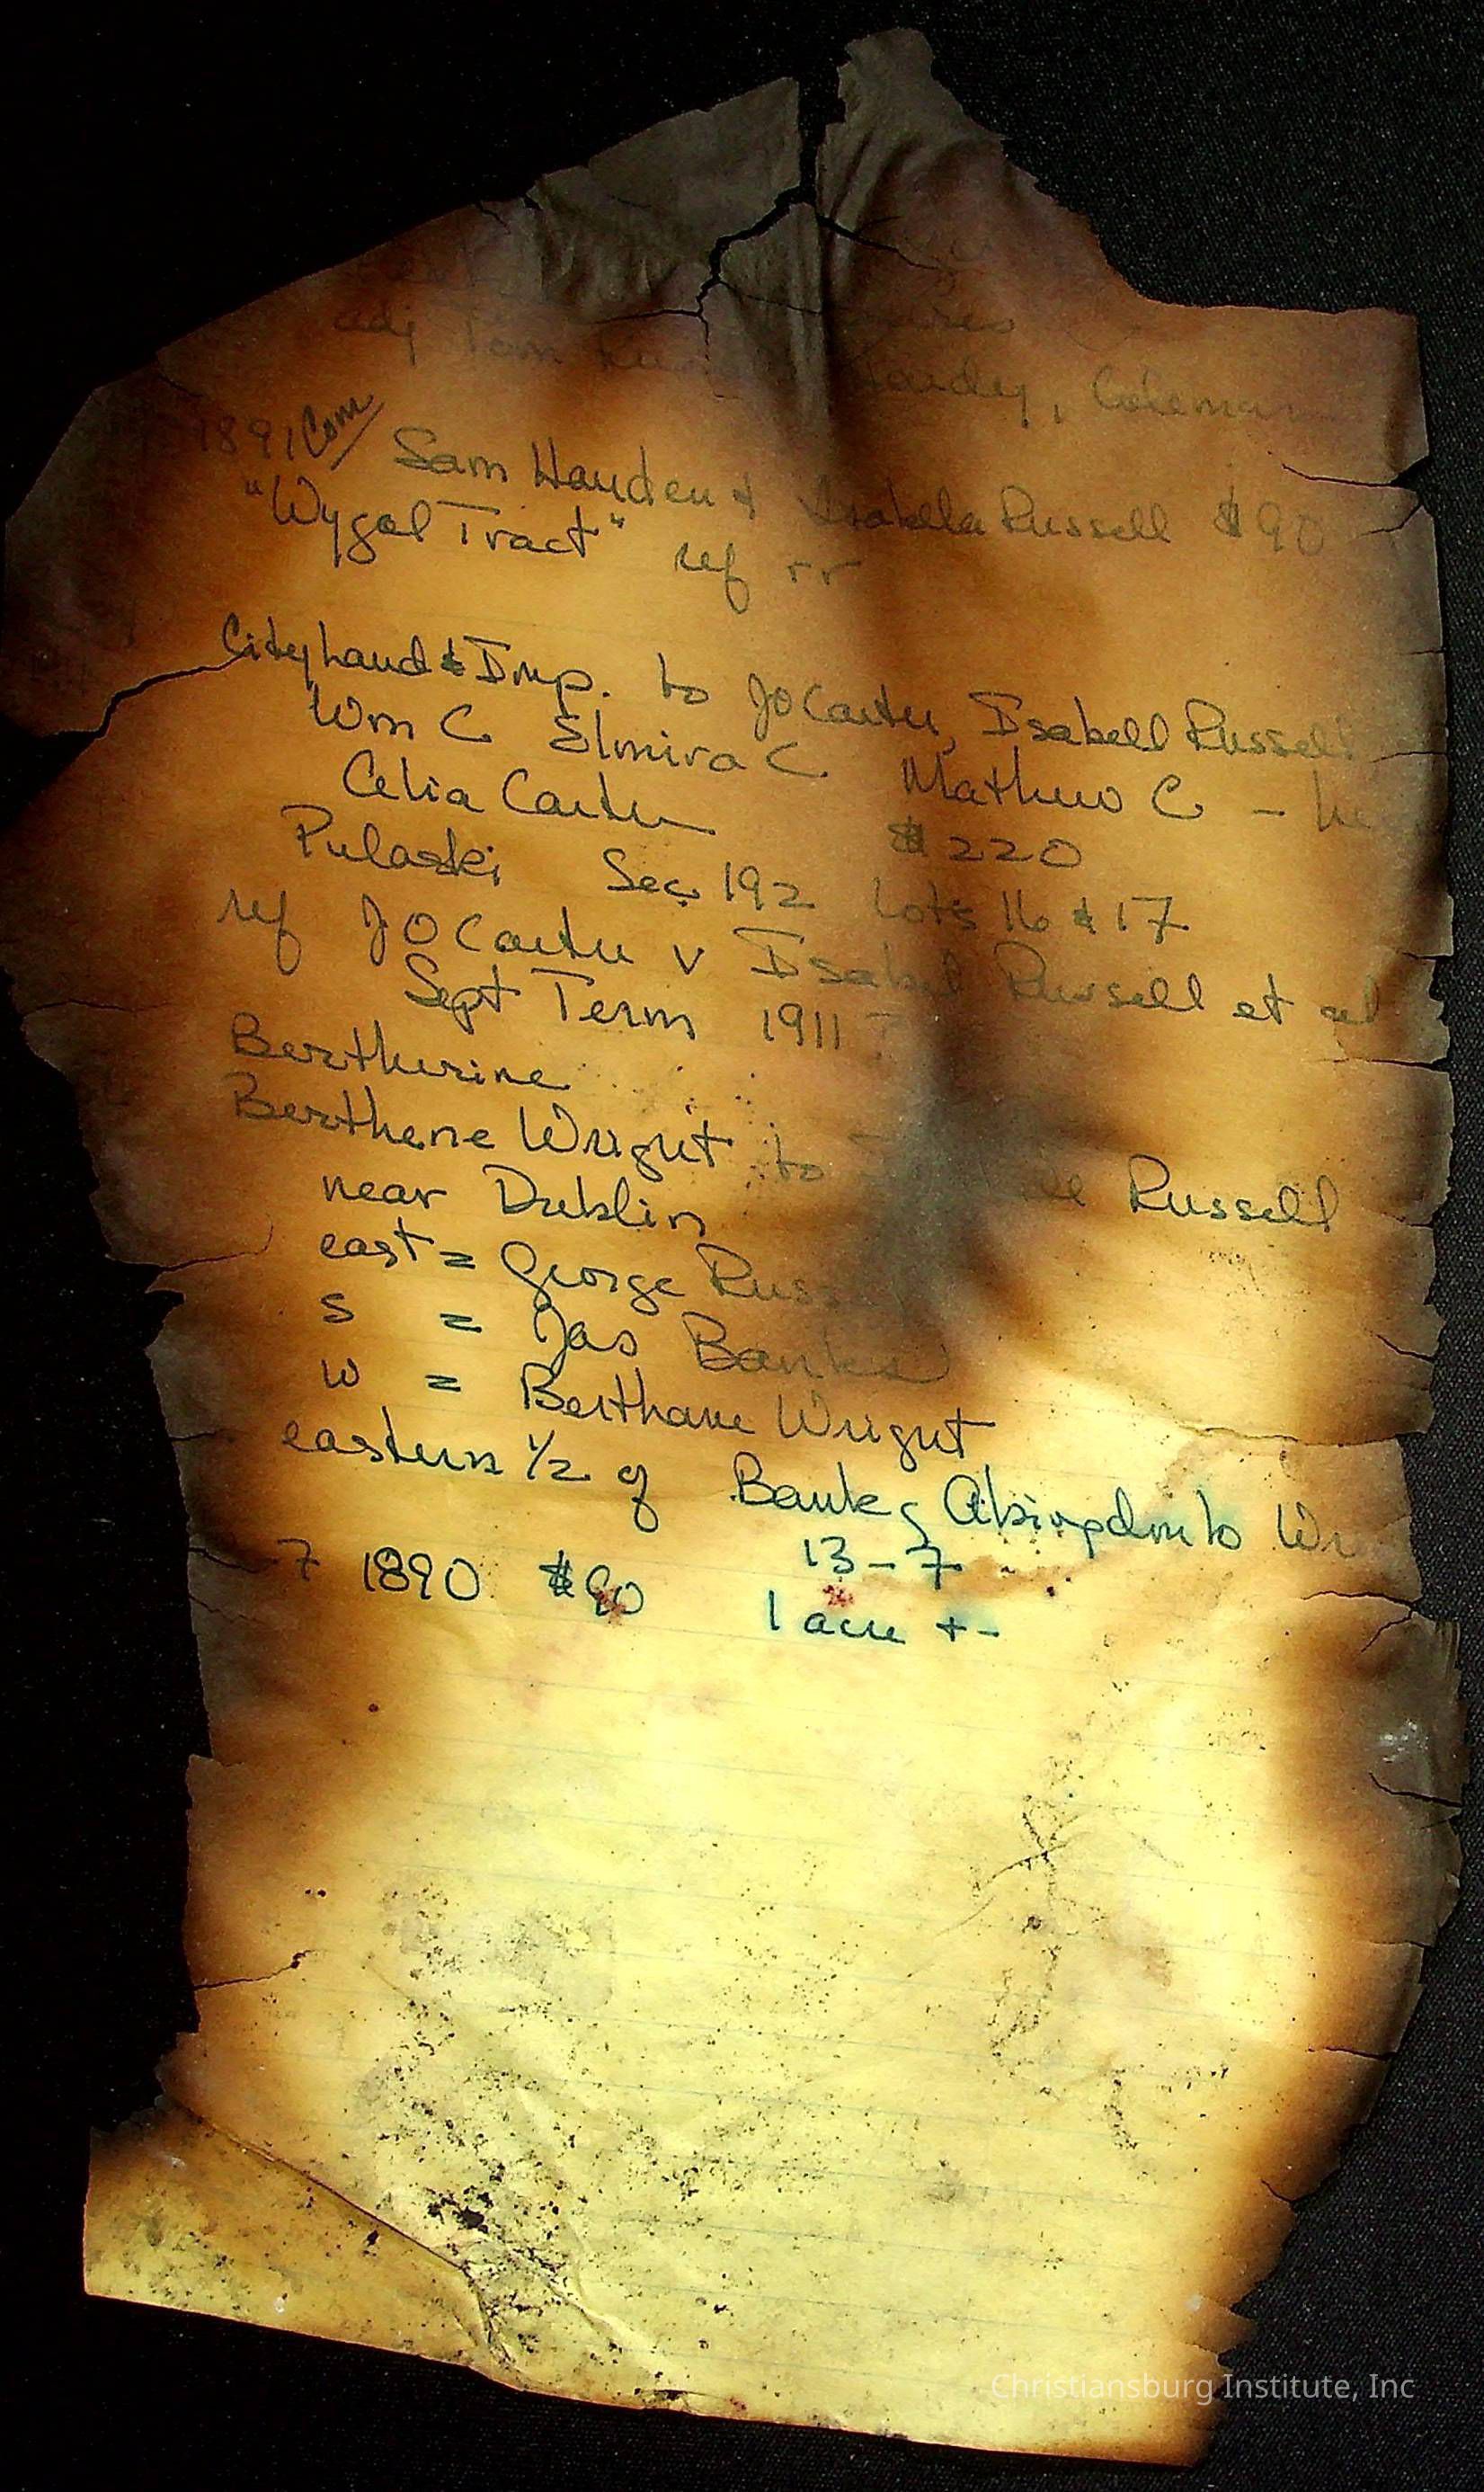 adj Tom
Coleman
1891 Com/ Sam Hayden & Isabella Russell $90
"Wygal Tract" ref rr
City Land & Imp. to JO Carter, Isabell Russell
Wm C Elmira C Mathew C -
Celia Carter $220
Pulaski Sec 192 Lots 16 & 17
ref JO Carter v Isabel Russell et al
Sept Term 1911
Bertherine
Berthene Wright to Russell
near Dublin
east = George Russ
S = Jas Banks
W = Berthane Wright
eastern 1/2 of Banks Abingdon to Wr
7 1890 $90 13-7
1 acre +-
Christiansburg Institute, Inc